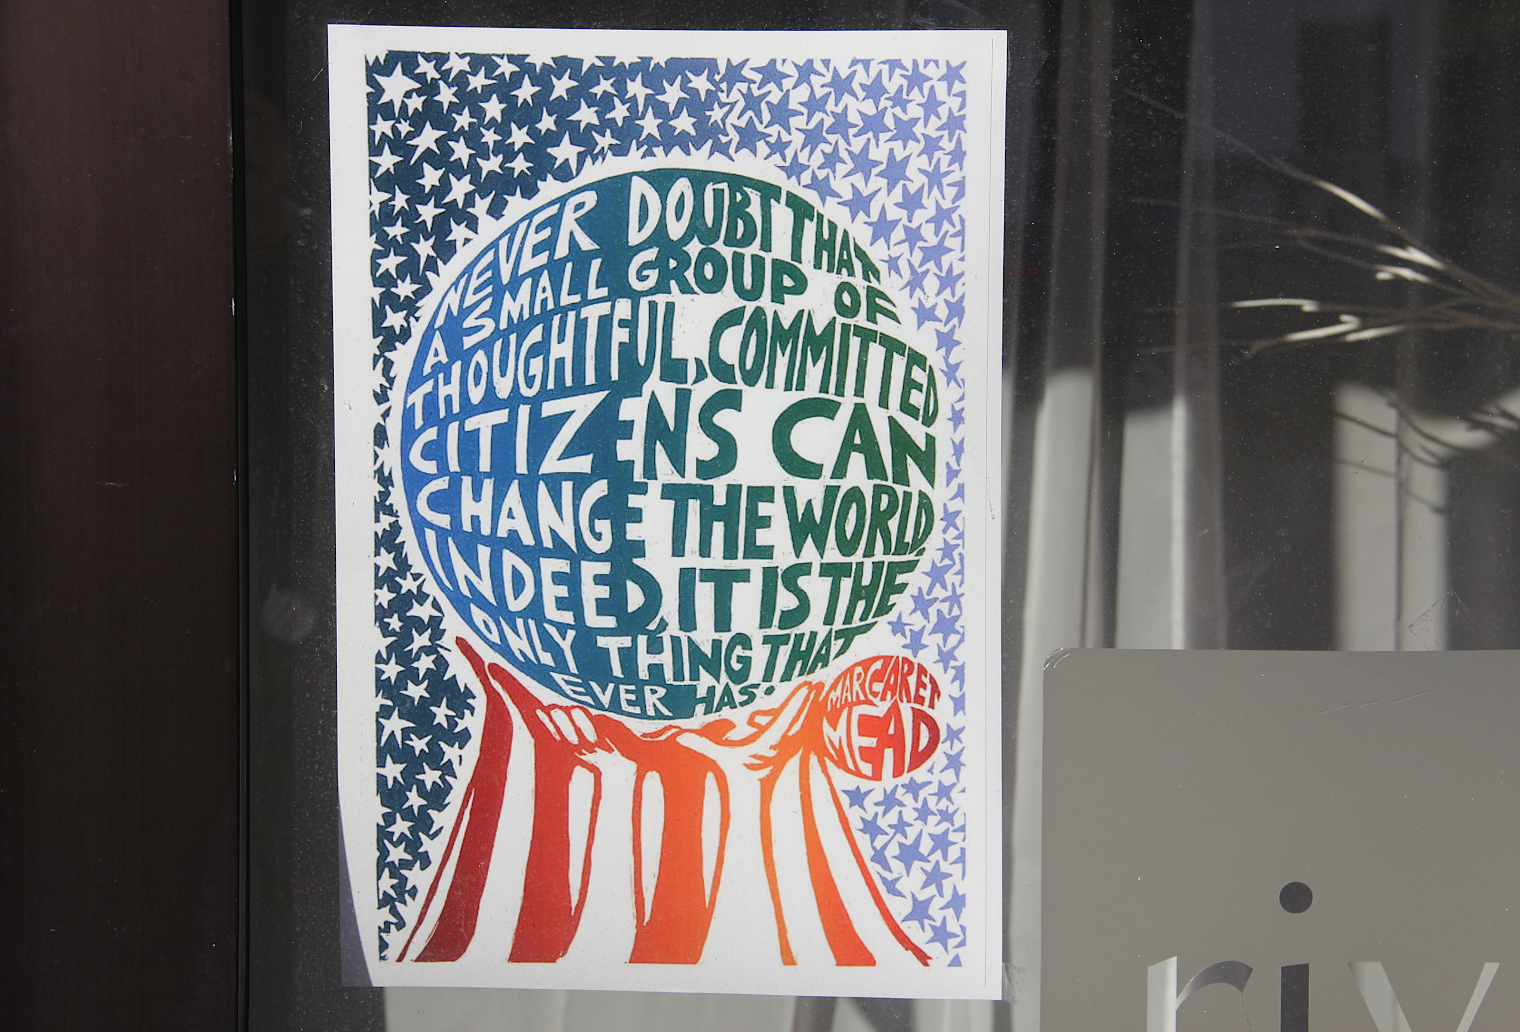 NEVER DOUBT THAT
A SMALL GROUP OF
THOUGHTFUL, COMMITTED
CITIZENS CAN
CHANGE THE WORLD.
INDEED, IT IS THE
ONLY THING THAT
EVER HAS.
MARGARET
MEAD
riv